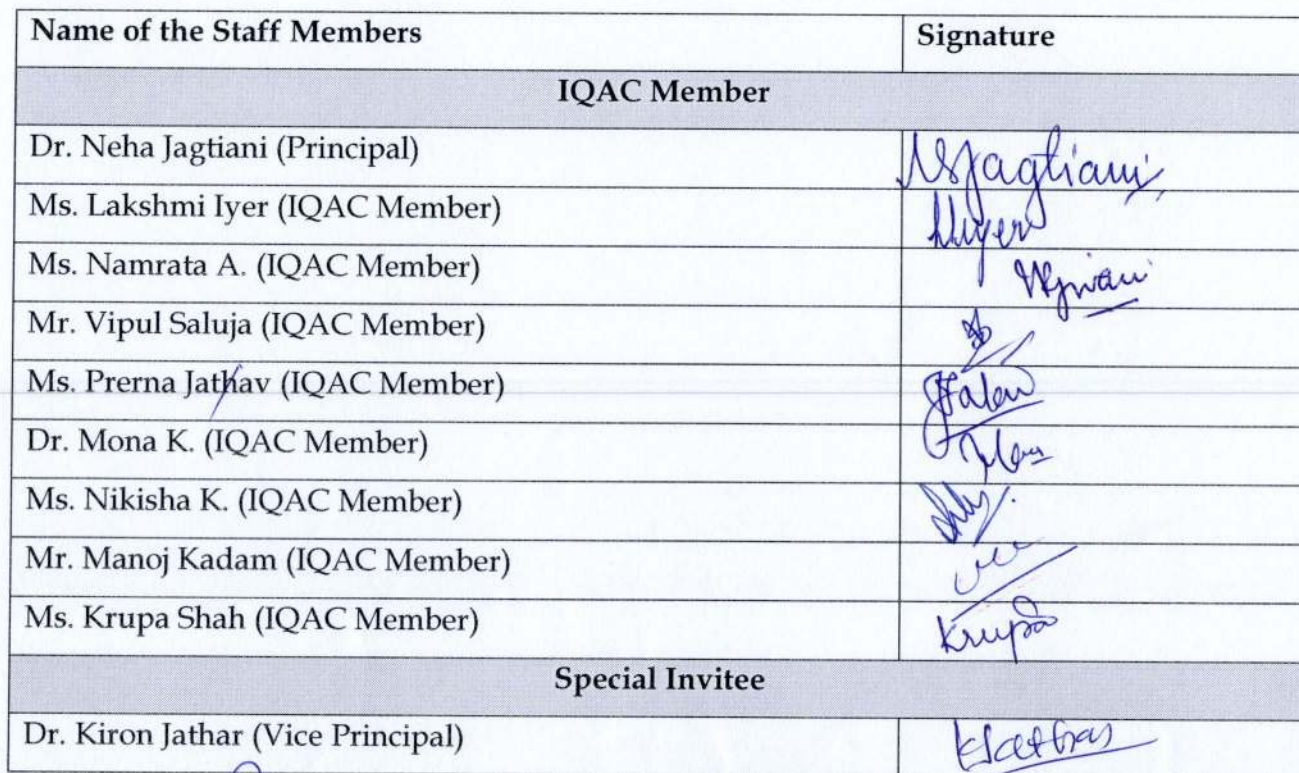 Name of the Staff Members Signature
IQAC Member
Dr. Neha Jagtiani (Principal) NSJagtiani
Ms. Lakshmi Iyer (IQAC Member) LIyer
Ms. Namrata A. (IQAC Member)
Mr. Vipul Saluja (IQAC Member)
Ms. Prerna Jathav (IQAC Member)
Dr. Mona K. (IQAC Member)
Ms. Nikisha K. (IQAC Member)
Mr. Manoj Kadam (IQAC Member)
Ms. Krupa Shah (IQAC Member) Krupa
Special Invitee
Dr. Kiron Jathar (Vice Principal) KJathar